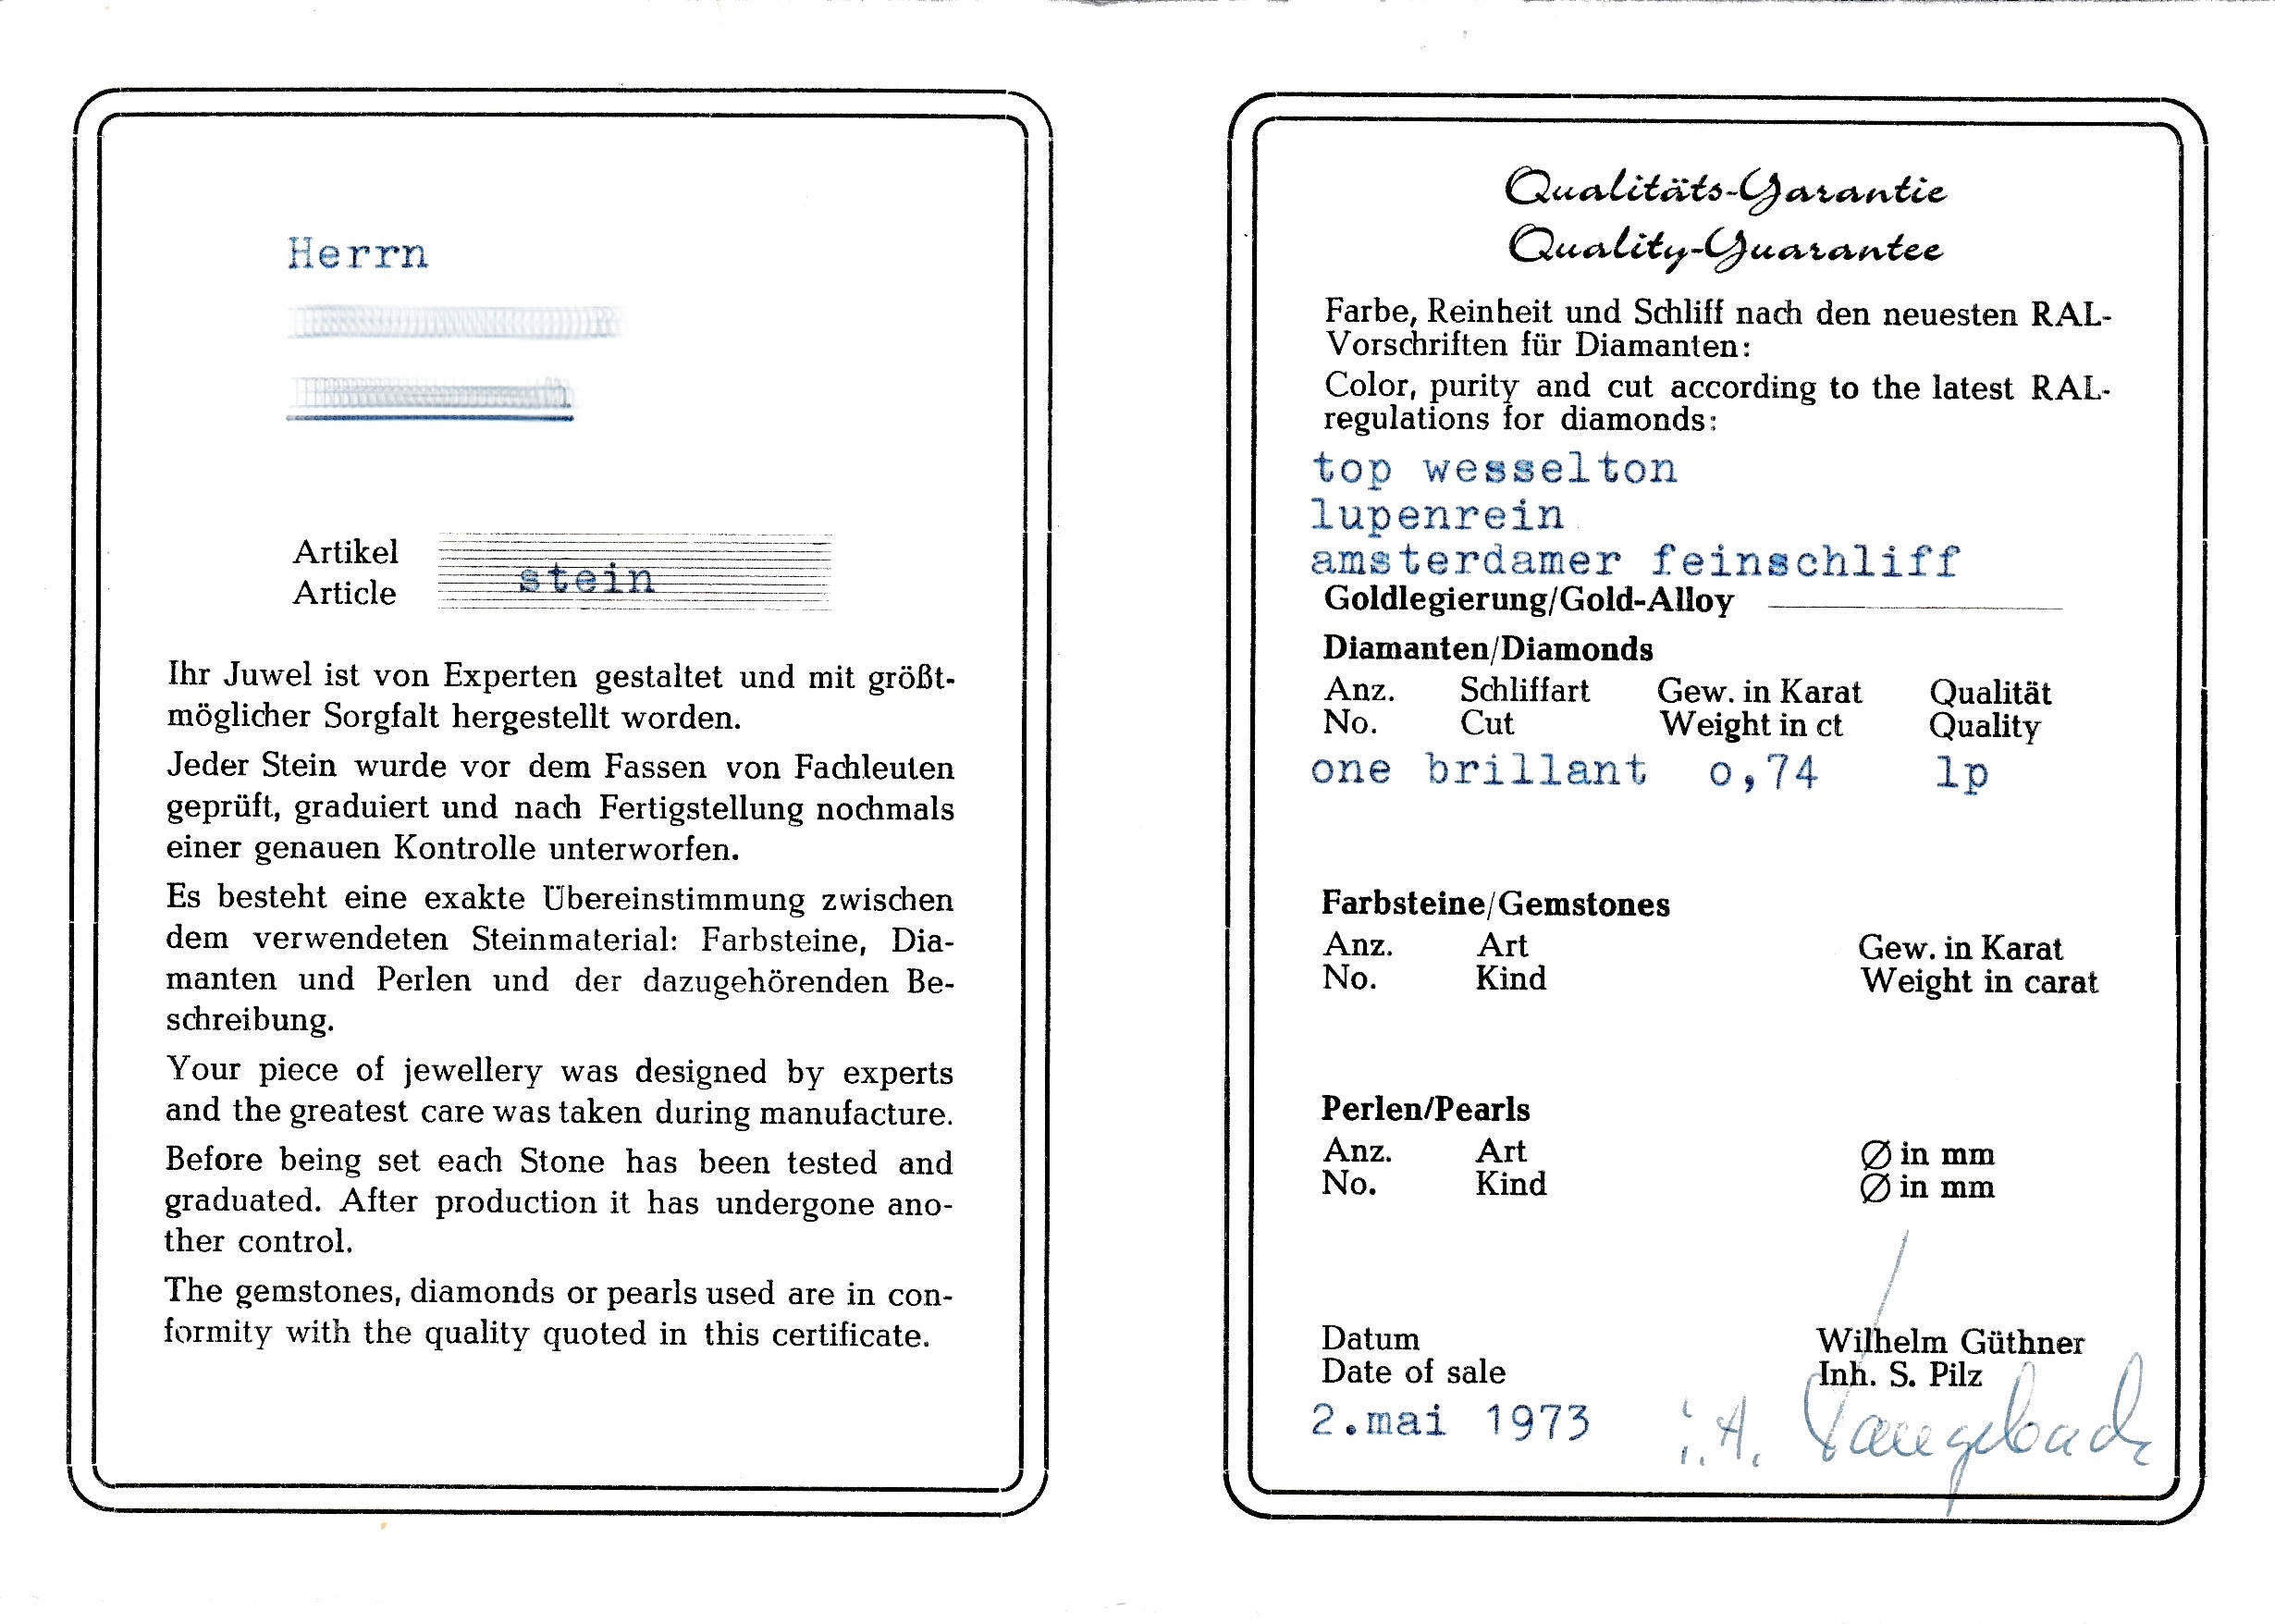 Herrn
Artikel
Article
stein
Ihr Juwel ist von Experten gestaltet und mit größt-
möglicher Sorgfalt hergestellt worden.
Jeder Stein wurde vor dem Fassen von Fachleuten
geprüft, graduiert und nach Fertigstellung nochmals
einer genauen Kontrolle unterworfen.
Es besteht eine exakte Übereinstimmung zwischen
dem verwendeten Steinmaterial: Farbsteine, Dia-
manten und Perlen und der dazugehörenden Be-
schreibung.
Your piece of jewellery was designed by experts
and the greatest care was taken during manufacture.
Before being set each Stone has been tested and
graduated. After production it has undergone ano-
ther control.
The gemstones, diamonds or pearls used are in con-
formity with the quality quoted in this certificate.
Qualitäts-Garantie
Quality-Guarantee
Farbe, Reinheit und Schliff nach den neuesten RAL-
Vorschriften für Diamanten:
Color, purity and cut according to the latest RAL-
regulations for diamonds:
top wesselton
lupenrein
amsterdamer feinschliff
Goldlegierung/Gold-Alloy
Diamanten/Diamonds
Anz. Schliffart Gew. in Karat Qualität
No. Cut Weight in ct Quality
one brillant o,74 lp
Farbsteine/Gemstones
Anz. Art Gew. in Karat
No. Kind Weight in carat
Perlen/Pearls
Anz. Art Ø in mm
No. Kind Ø in mm
Datum Wilhelm Güthner
Date of sale Inh. S. Pilz
2.mai 1973 i.A.